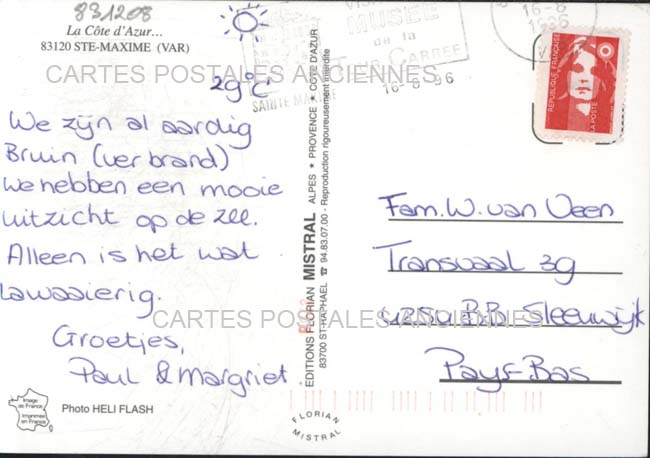 831208
La Côte d'Azur...
83120 STE-MAXIME (VAR)
29°C
We zijn al aardig
Bruin (verbrand)
We hebben een mooie
uitzicht op de zee.
Alleen is het wat
lawaaierig.
Groetjes,
Paul & Margriet
Image
de France
Imprimée
en France
Photo HELI FLASH
EDITIONS FLORIAN MISTRAL ALPES ★ PROVENCE ★ CÔTE D'AZUR
83700 ST-RAPHAËL ☎ 94.83.07.00 - Reproduction rigoureusement interdite
FLORIAN
MISTRAL
MUSEE
de la
CARREE
SAINTE MAXIME
16-8-96
16-8
1996
REPUBLIQUE FRANÇAISE
LA POSTE
Fam. W. van Veen
Transvaal 39
4254 B.B. Sleeuwijk
Pays-Bas
CARTES POSTALES ANCIENNES
CARTES POSTALES ANCIENNES